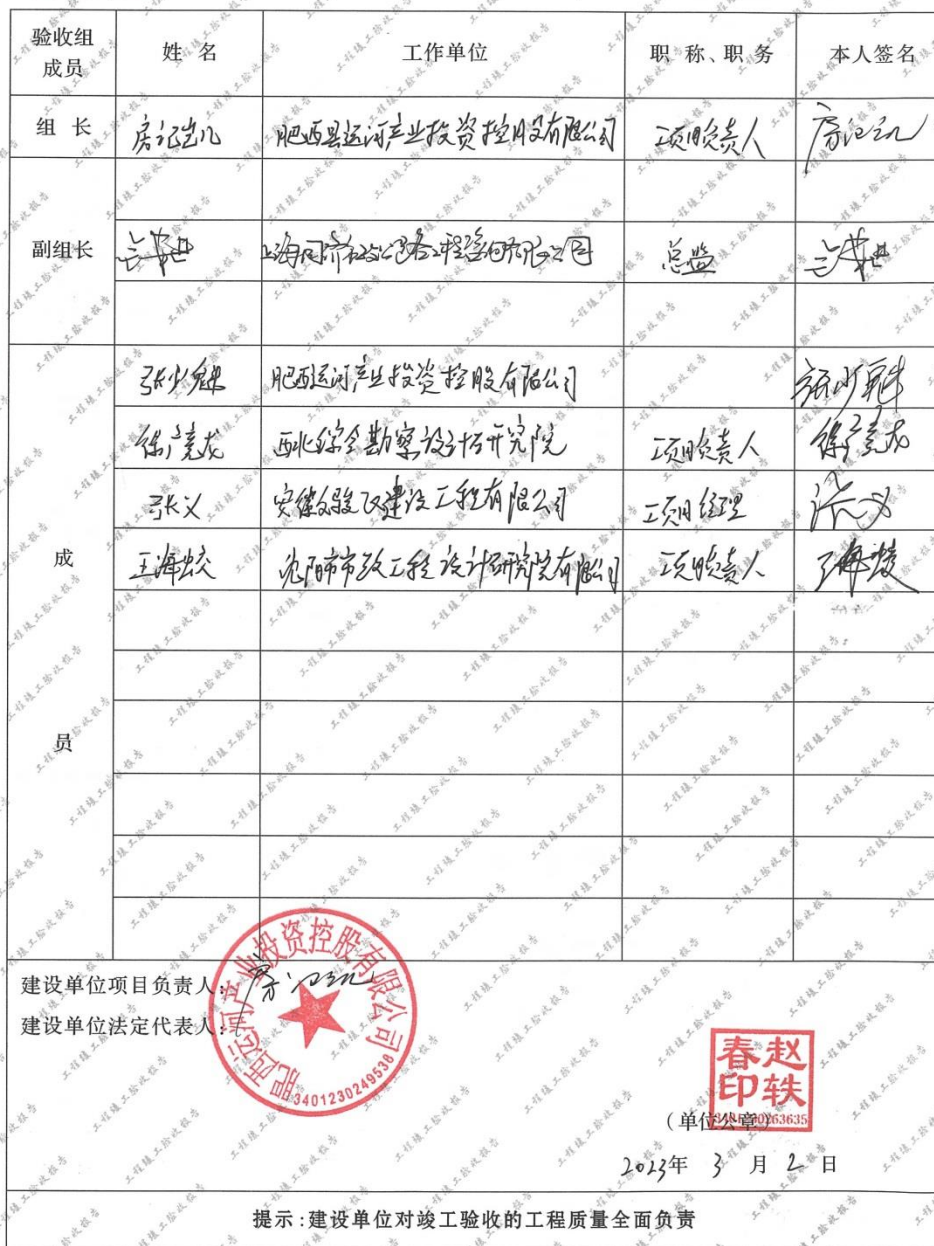 验收组成员 姓名 工作单位 职称、职务 本人签名
组长 房记凯 肥西县运河产业投资控股有限公司 项目负责人 房记凯
副组长 总监
张少魁 肥西运河产业投资控股有限公司
徐竞龙 西北综合勘察设计研究院 项目负责人 徐竞龙
张义 建设工程有限公司 项目经理 张义
王海蛟 沈阳市市政工程设计研究院有限公司 项目负责人 王海蛟
成员
建设单位项目负责人: 房记凯
建设单位法定代表人:
肥西运河产业投资控股有限公司
3401230249538
赵轶春印
(单位公章)
2023年 3 月 2 日
提示:建设单位对竣工验收的工程质量全面负责
工程竣工验收报告